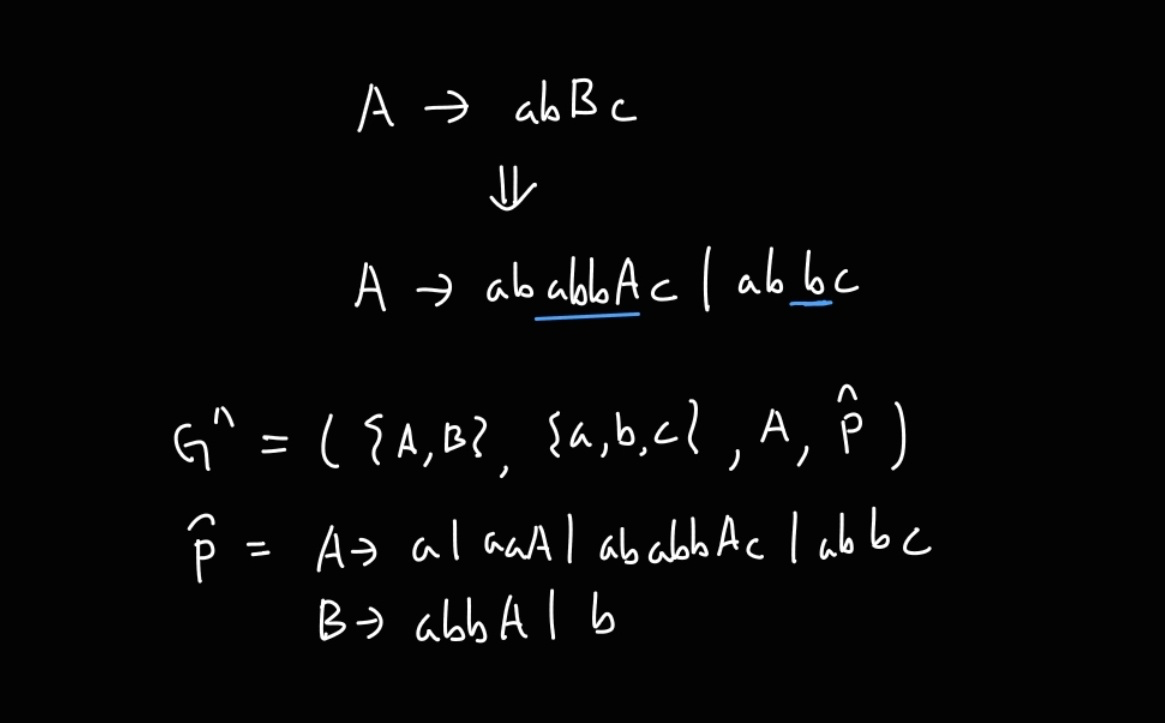 A → abBc
⇓
A → ababbAc | abbc
G^ = ({A,B}, {a,b,c}, A, P̂)
P̂ = A→ a | aaA | ababbAc | abbc
B→ abbA | b